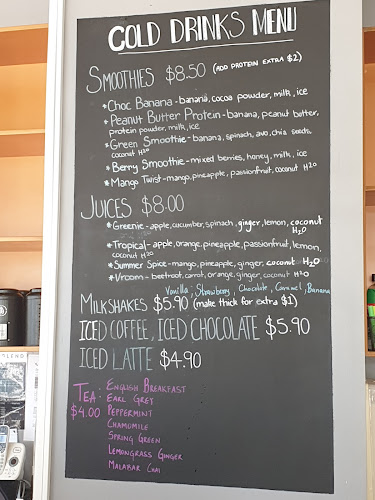 COLD DRINKS MENU
SMOOTHIES $8.50 (ADD PROTEIN EXTRA $2)
*Choc Banana - banana, cocoa powder, milk, ice
*Peanut Butter Protein - banana, peanut butter,
protein powder, milk, ice
*Green Smoothie - banana, spinach, avo, chia seeds,
coconut H²⁰
*Berry Smoothie - mixed berries, honey, milk, ice
*Mango Twist - mango, pineapple, passionfruit, coconut H²⁰
JUICES $8.00
*Greenie - apple, cucumber, spinach, ginger, lemon, coconut
H₂O
*Tropical - apple, orange, pineapple, passionfruit, lemon,
coconut H²⁰
*Summer Spice - mango, pineapple, ginger, coconut H₂O
*Vroom - beetroot, carrot, orange, ginger, coconut H²⁰
Vanilla, Strawberry, Chocolate, Caramel, Banana
MILKSHAKES $5.90 (make thick for extra $1)
ICED COFFEE, ICED CHOCOLATE $5.90
ICED LATTE $4.90
TEA: ENGLISH BREAKFAST
$4.00 EARL GREY
PEPPERMINT
CHAMOMILE
SPRING GREEN
LEMONGRASS GINGER
MALABAR CHAI